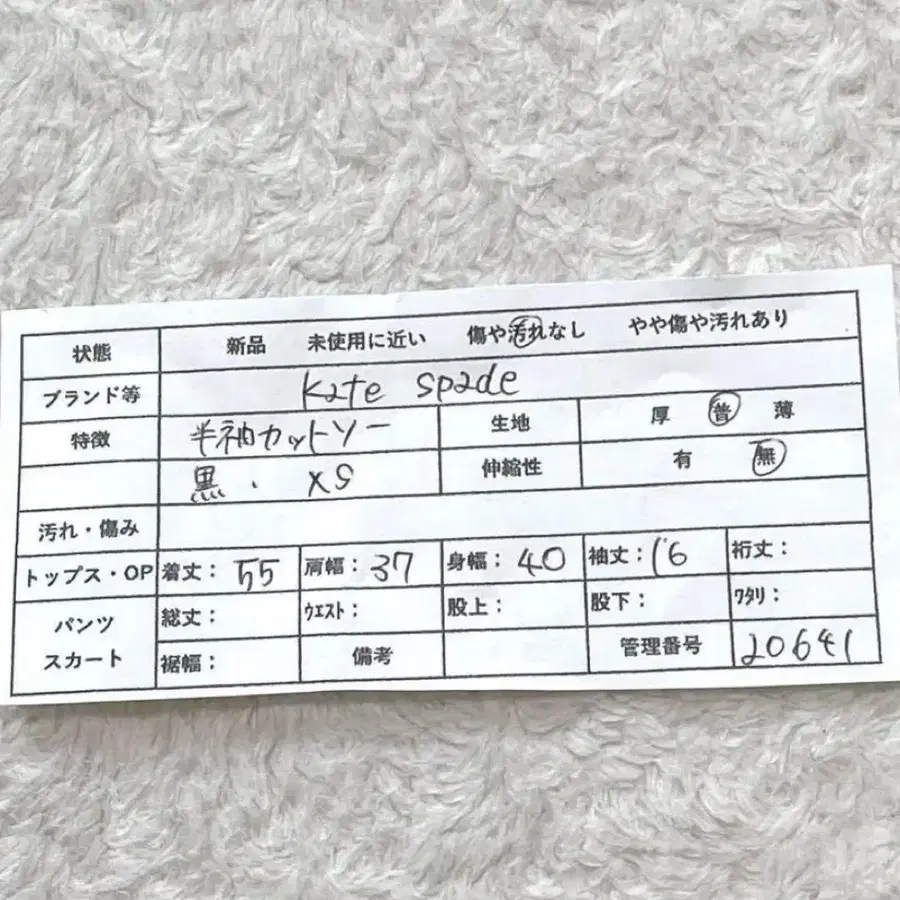 状態 新品 未使用に近い 傷や汚れなし やや傷や汚れあり
ブランド等 kate spade
特徴 半袖カットソー 生地 厚 普 薄
黒. XS 伸縮性 有 無
汚れ・傷み
トップス・OP 着丈: 55 肩幅: 37 身幅: 40 袖丈: 16 裄丈:
パンツ スカート 総丈: ウエスト: 股上: 股下: ワタリ:
裾幅: 備考 管理番号 20641